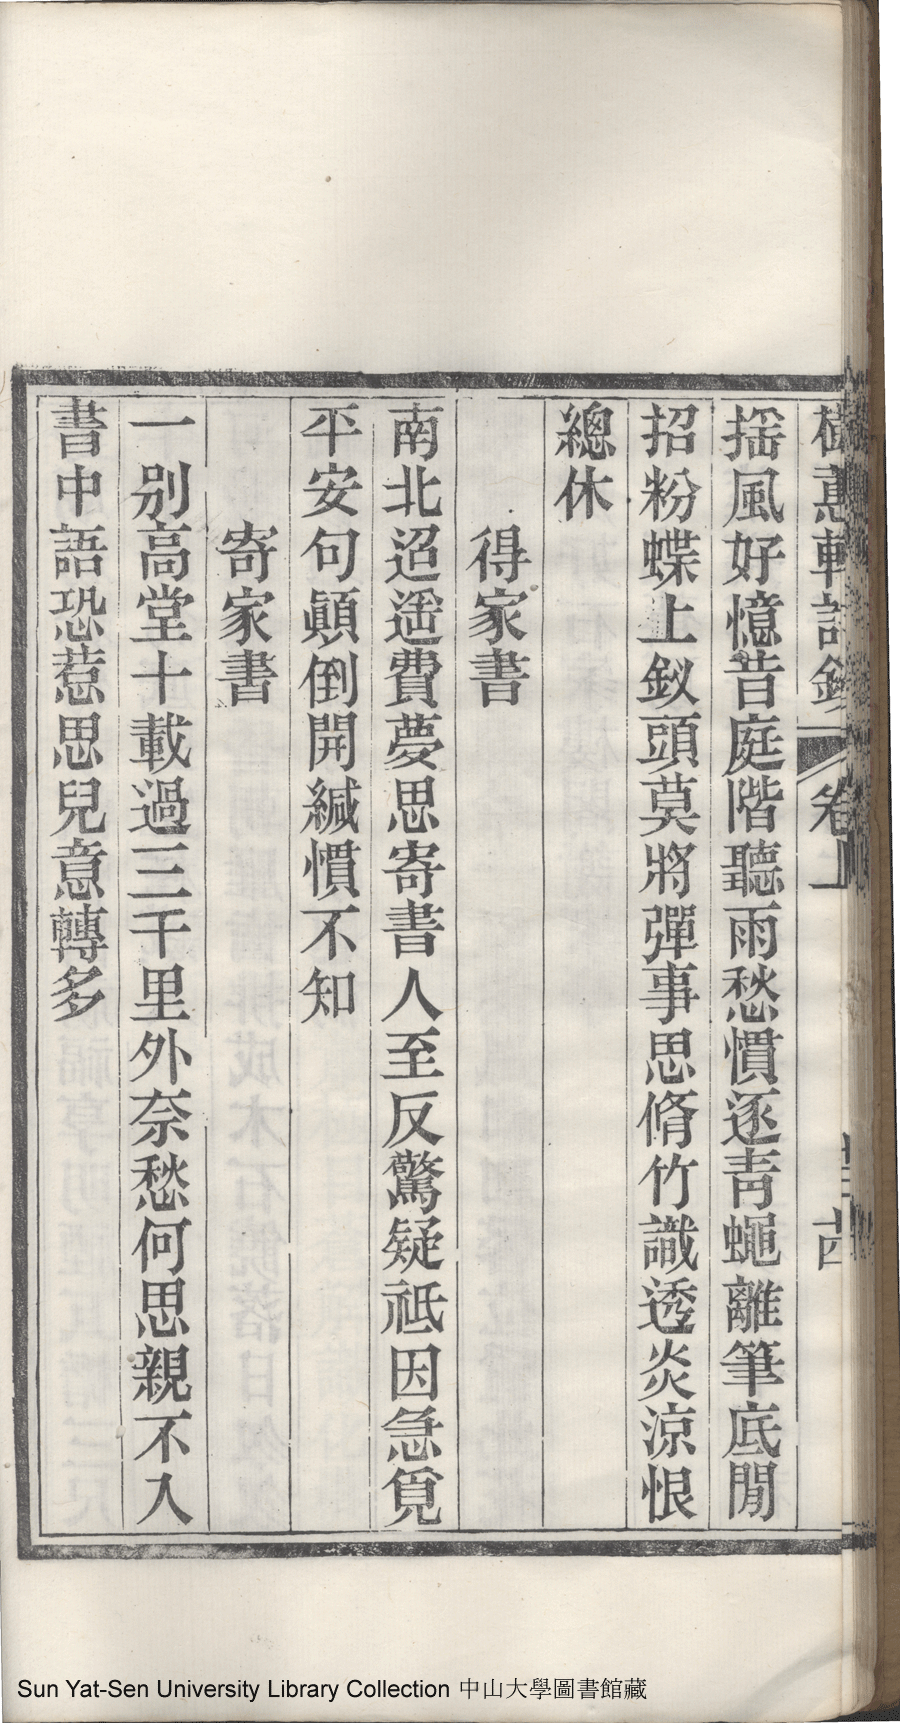 樹蕙軒詩鈔 卷上 十四
揺風好憶昔庭階聽雨愁慣逐靑蠅離筆底閒
招粉蝶上釵頭莫將彈事思脩竹識透炎涼恨
總休
得家書
南北迢遥費夢思寄書人至反驚疑祇因急覓
平安句顚倒開緘慣不知
寄家書
一別高堂十載過三千里外奈愁何思親不入
書中語恐惹思兒意轉多
Sun Yat-Sen University Library Collection 中山大學圖書館藏